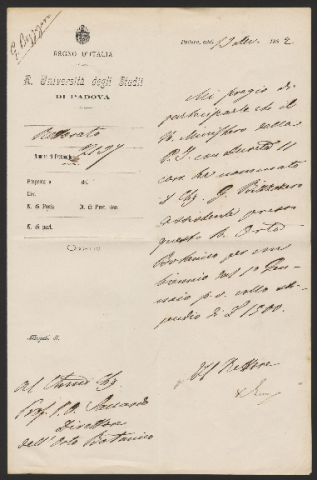 G. Bizzozero
REGNO D'ITALIA
R. Università degli Studi
DI PADOVA
Rettorato
Numero di Protocollo 2137
Risposta a
Div.
N. di Posiz. N. di Prot. Gen.
N. di part.
OGGETTO
Allegati N.
Al Chmo Sig
Prof. P. A. Saccardo
Direttore
dell'Orto Botanico
Padova, addì 188
Mi pregio di
parteciparle che il
R. Ministero della
P. I. con Decreto 11
corr. ha nominato
il Sig. G. Bizzozero
Assistente presso
questo R. Orto
Botanico per un
biennio dal 1° Gen
naio p. v. collo sti
pendio di L 1500.
Il Rettore